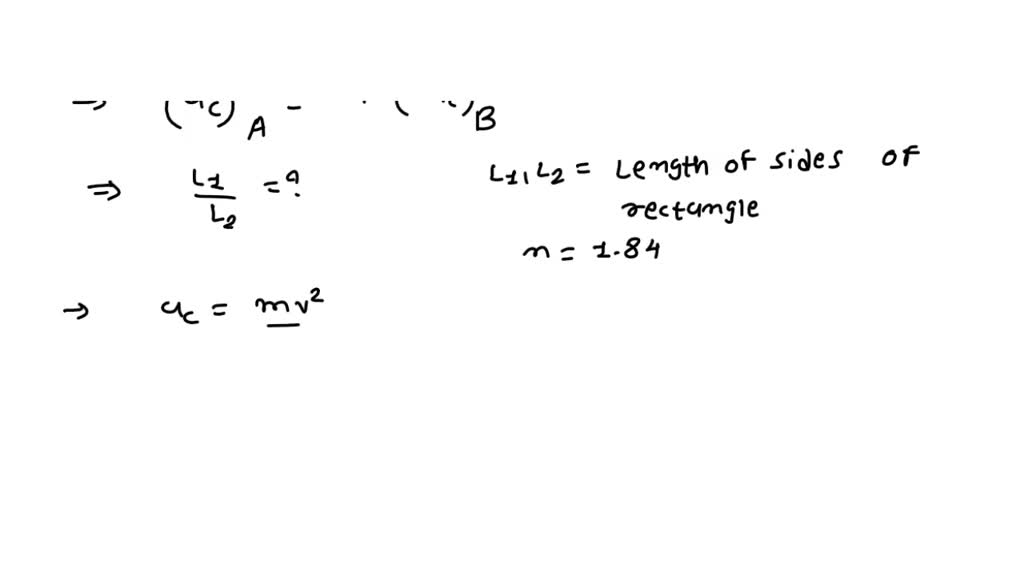 ⇒ (ac)A = (ac)B
⇒ L1/L2 = ?
L1, L2 = Length of sides of
rectangle
n = 1.84
→ ac = mv²